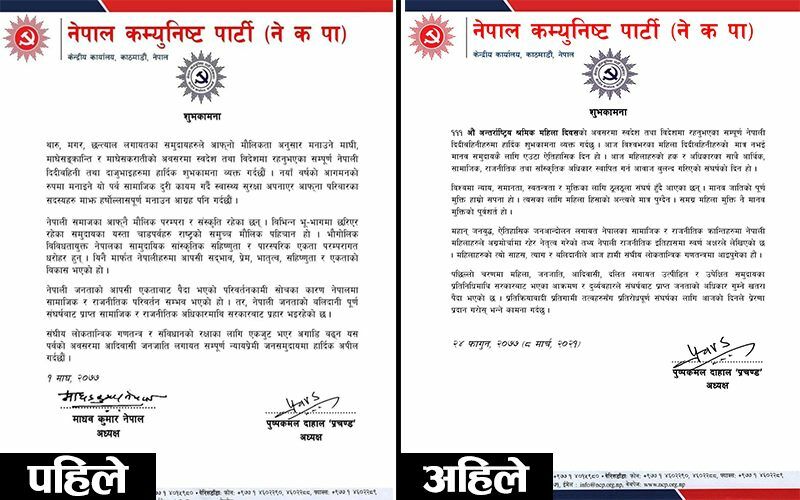 नेपाल कम्युनिष्ट पार्टी (ने क पा)
केन्द्रीय कार्यालय, काठमाडौं, नेपाल
शुभकामना
थारु, मगर, छन्त्याल लगायतका समुदायहरुले आफ्नो मौलिकता अनुसार मनाउने माघी,
माघेसङ्क्रान्ति र माघेसकरातीको अवसरमा स्वदेश तथा विदेशमा रहनुभएका सम्पूर्ण नेपाली
दिदीबहिनी तथा दाजुभाइहरुमा हार्दिक शुभकामना व्यक्त गर्दछौं । नयाँ वर्षको आगमनको
रुपमा मनाइने यो पर्व सामाजिक दुरी कायम गर्दै स्वास्थ्य सुरक्षा अपनाएर आफ्ना परिवारका
सदस्यहरु माझ हर्षोल्लासपूर्ण मनाउन आग्रह पनि गर्दछौं ।
नेपाली समाजका आफ्नै मौलिक परम्परा र संस्कृति रहेका छन् । विभिन्न भू-भागमा छरिएर
रहेका समुदायका यस्ता चाडपर्वहरु राष्ट्रको समुच्च मौलिक पहिचान हो । भौगोलिक
विविधतायुक्त नेपालका सामुदायिक सांस्कृतिक सहिष्णुता र पारस्परिक एकता परम्परागत
धरोहर हुन् । यिनै मार्फत नेपालीहरुमा आपसी सद्भाव, प्रेम, भातृत्व, सहिष्णुता र एकताको
विकास भएको हो ।
नेपाली जनताको आपसी एकताबाट पैदा भएको परिवर्तनकामी सोचका कारण नेपालमा
सामाजिक र राजनीतिक परिवर्तन सम्भव भएको हो । तर, नेपाली जनताको बलिदानी पूर्ण
संघर्षबाट प्राप्त सामाजिक र राजनीतिक अधिकारमाथि सरकारबाट प्रहार भइरहेको छ ।
संघीय लोकतान्त्रिक गणतन्त्र र संविधानको रक्षाका लागि एकजुट भएर अगाडि बढ्न यस
पर्वको अवसरमा आदिवासी जनजाति लगायत सम्पूर्ण न्यायप्रेमी जनसमुदायमा हार्दिक अपील
गर्दछौं ।
१ माघ, २०७७
माधव कुमार नेपाल
अध्यक्ष
पुष्पकमल दाहाल 'प्रचण्ड'
अध्यक्ष
पहिले
नेपाल कम्युनिष्ट पार्टी (ने क पा)
केन्द्रीय कार्यालय, काठमाडौं, नेपाल
शुभकामना
१११ औं अन्तर्राष्ट्रिय श्रमिक महिला दिवसको अवसरमा स्वदेश तथा विदेशमा रहनुभएका सम्पूर्ण नेपाली
दिदीबहिनीहरुमा हार्दिक शुभकामना व्यक्त गर्दछु । आज विश्वभरका महिला दिदीबहिनीहरुको मात्र नभई
मानव समुदायकै लागि एउटा ऐतिहासिक दिन हो । आज महिलाहरुको हक र अधिकारका साथै आर्थिक,
सामाजिक, राजनीतिक तथा सांस्कृतिक अधिकार स्थापित गर्न आवाज बुलन्द गरिएको संघर्षको दिन हो ।
विश्वमा न्याय, समानता, स्वतन्त्रता र मुक्तिका लागि ठूलठूला संघर्ष हुँदै आएका छन् । मानव जातिको पूर्ण
मुक्ति हाम्रो सपना हो । त्यसका लागि महिला हिंसाको अन्त्यले मात्र पुग्दैन । समग्र महिला मुक्ति नै मानव
मुक्तिको पूर्वशर्त हो ।
महान् जनयुद्ध, ऐतिहासिक जनआन्दोलन लगायत नेपालका सामाजिक र राजनीतिक क्रान्तिहरुमा नेपाली
महिलाहरुले अग्रमोर्चामा रहेर नेतृत्व गरेको तथ्य नेपाली राजनीतिक इतिहासमा स्वर्ण अक्षरले लेखिएको छ
। महिलाहरुको त्यो साहस, त्याग र बलिदानीले आज हामी संघीय लोकतान्त्रिक गणतन्त्रमा आइपुगेका हौं ।
पछिल्लो चरणमा महिला, जनजाति, आदिवासी, दलित लगायत उत्पीडित र उपेक्षित समुदायका
प्रतिनिधिमाथि सरकारबाट भएका आक्रमण र दुर्व्यवहारले संघर्षबाट प्राप्त जनताको अधिकार गुम्ने खतरा
पैदा भएको छ । प्रतिक्रियावादी प्रतिगामी तत्वहरुसँग प्रतिरोधपूर्ण संघर्षका लागि आजको दिनले प्रेरणा
प्रदान गरोस् भन्ने कामना गर्दछु ।
२४ फागुन, २०७७ (८ मार्च, २०२१)
पुष्पकमल दाहाल 'प्रचण्ड'
अध्यक्ष
अहिले